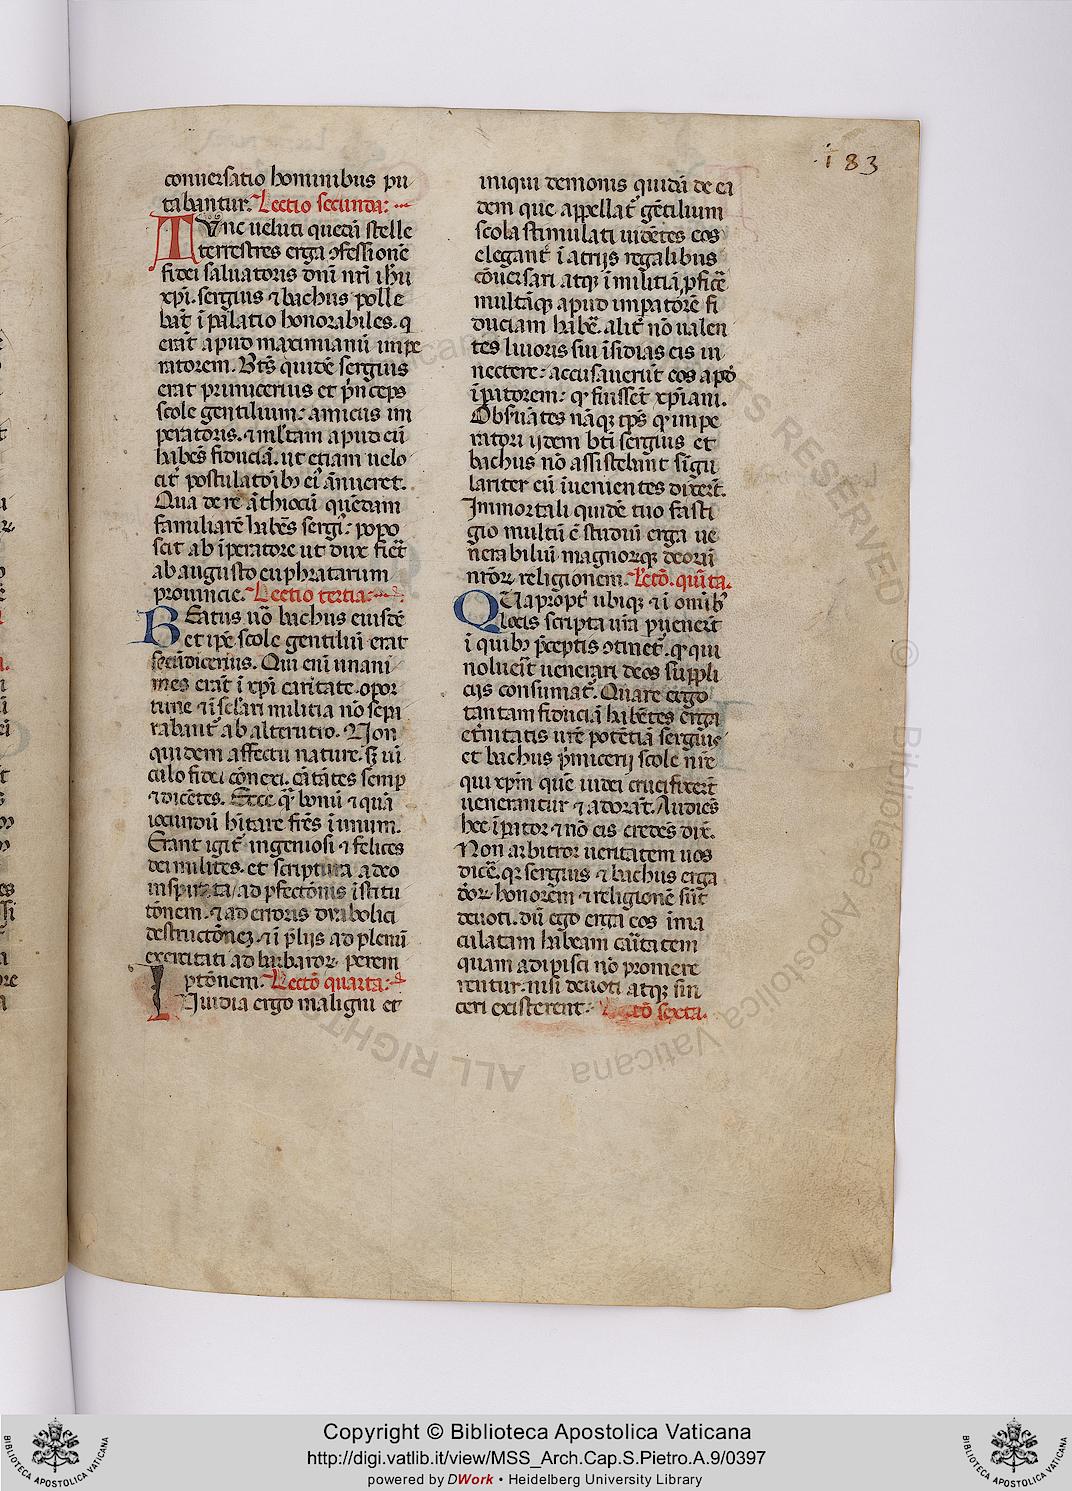 183
conuersatio hominibus pu
tabantur. Lectio secunda:
Tunc ueluti quedā stelle
terrestres erga ꝯfessionē
fidei saluatoris dnī nrī ihū
xpī. sergius ⁊ bachus polle
bāt ī palatio honorabiles. q
erāt apud maximianū impe
ratorem. Bt̄s quidē sergius
erat primicerius et p̄nceps
scole gentilium: amicus im
peratoris. ⁊ ml̄tam apud eū
habēs fiduciā. ut etiam uelo
cit̄ postulatōibꝫ ei᷒ ānueret.
Qua de re āthiocū quēdam
familiarē habēs sergi᷒: popo
scit ab īperatore ut dux fieret
ab augusto euphratarum
prouincie. Lectio tertia:
Beatus uō bachus eiusdē
et ip̄e scole gentiliū erat
secūdicerius. Qui enī unani
mes erāt ī xpī caritate. opor
tune ⁊ ī sclari militia nō sepa
rabant̄ ab alterutro. Non
quidem affectu nature. sꝫ uī
culo fidei cōnexi. cātātes semꝑ
⁊ dicētes. Ecce q̄ bonū ⁊ quā
iocundū hītare frēs ī unum.
Erant igit̄ ingeniosi ⁊ felices
dei milites. et scriptura a deo
inspirata ad ꝑfectōnis īstitu
tōnem. ⁊ ad erroris diabolici
destructōnez. ⁊ ī p̄lijs ad plenū
exercitati ad barbaroꝝ perem
ptōnem. Lectō quarta:
Iuidia ergo maligni et
iniqui demonis quidā de ea
dem que appellat̄ gētilium
scola stimulati uidētes eos
elegant̄ ī atrijs regalibus
cōuersari atqꝫ ī militia ꝓficē
multāqꝫ apud impatorē fi
duciam habē. alit̄ nō ualen
tes liuoris sui īsidias eis in
nectere: accusauerūt eos apd̄
īpatorem: qꝛ fuisset xpiani.
Obsuātes nāqꝫ tps̄ qꝛ impe
ratori ijdem bt̄i sergius et
bachus nō assistebant singu
lariter eū īuenientes dixert̄.
Immortali quidē tuo fasti
gio multū ē studiū erga ue
nerabiliū magnorqꝫ deorū
nr̄oꝝ religionem. Lectō. quīta.
Quapropt̄ ubiqꝫ ⁊ ī omībꝫ
locis scripta uīa puenert̄
ī quibꝫ p̄ceptis ꝯtinet̄. qꝛ qui
noluert̄ uenerari deos suppli
cijs consumat̄. Quare ergo
tantam fiduciā habētes erga
et̄nitatis ur̄e potētiā sergius
et bachus p̄micerij scole nr̄e
qui xpm̄ quē iudei crucifixert̄
uenerantur ⁊ adorāt. Audiēs
hec īpator ⁊ nō eis credēs dix̄.
Non arbitror ueritatem uos
dicē. qꝛ sergius ⁊ bachus erga
dōꝝ honorem ⁊ religionē sūt
deuoti. dū ego erga eos īma
culatam habeam cāitatem
quam adipisci nō promere
rentur. nisi deuoti atqꝫ sin
ceri existerent: Lectō sexta.
ALL RIGHTS RESERVED © Biblioteca Apostolica Vaticana
Copyright © Biblioteca Apostolica Vaticana
http://digi.vatlib.it/view/MSS_Arch.Cap.S.Pietro.A.9/0397
powered by DWork • Heidelberg University Library
BIBLIOTECA APOSTOLICA VATICANA
BIBLIOTECA APOSTOLICA VATICANA